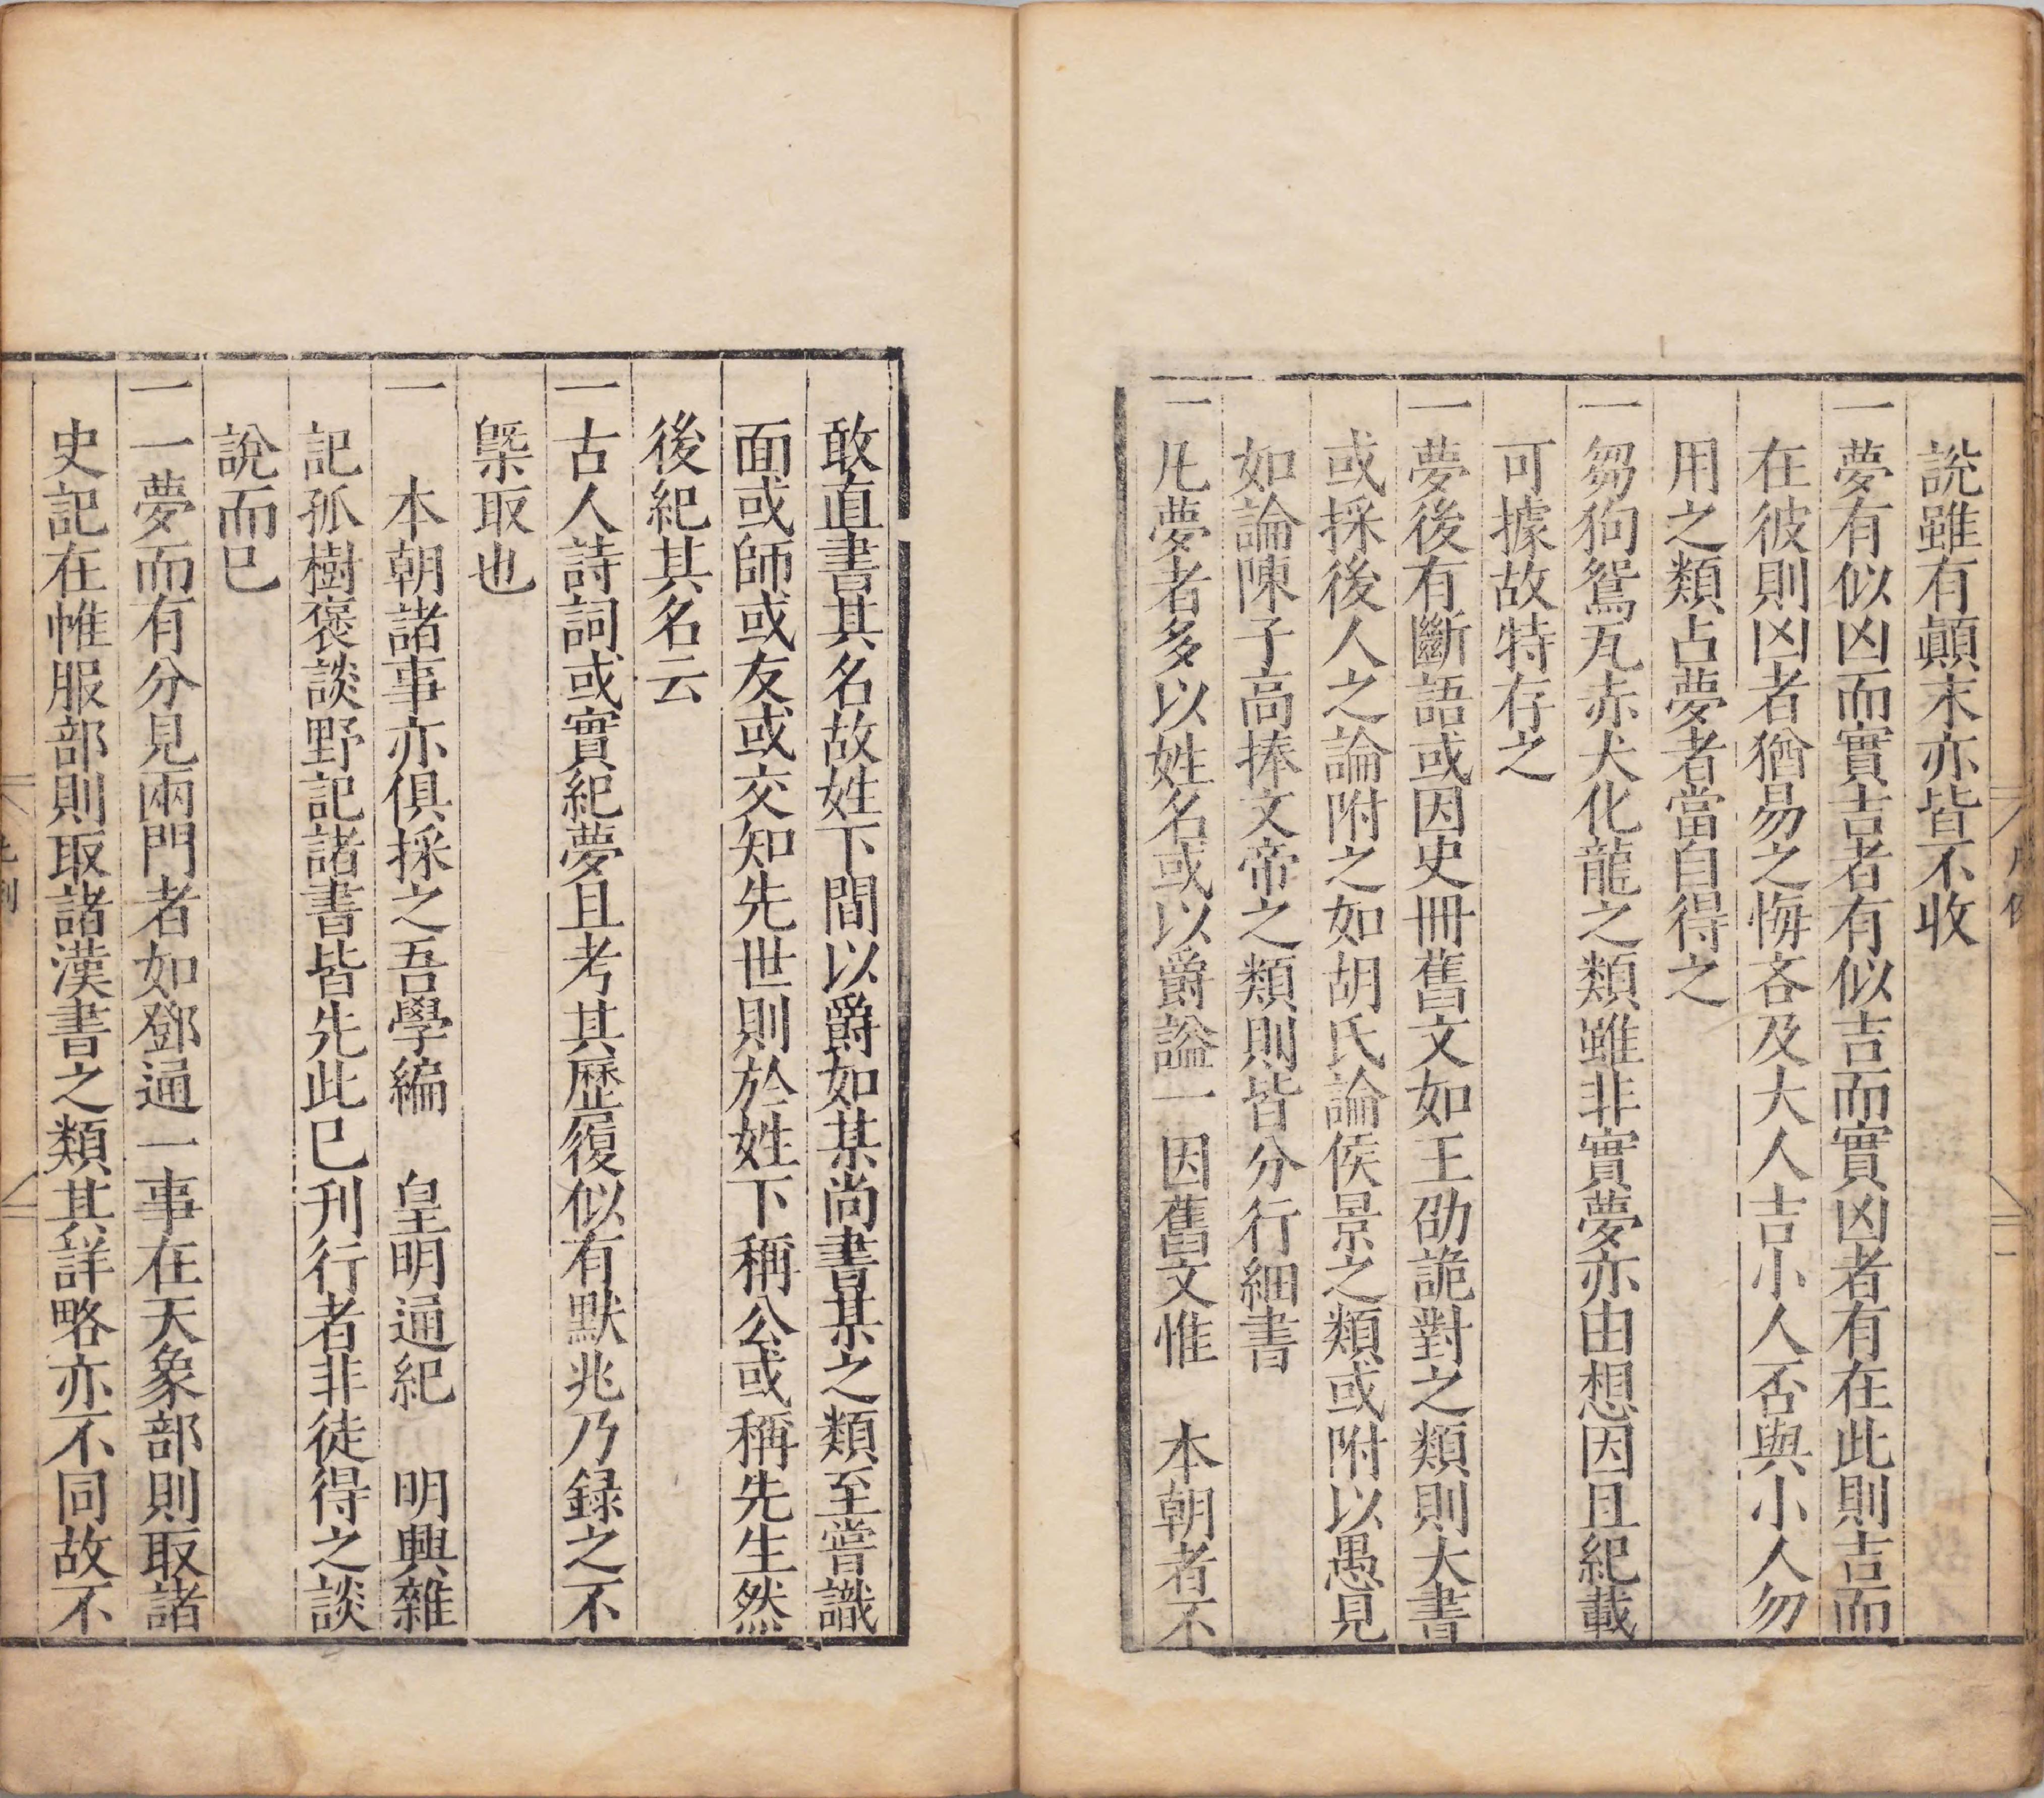 說雖有顛末亦皆不收
一夢有似凶而實吉者有似吉而實凶者有在此則吉而
在彼則凶者猶易之悔吝及大人吉小人否與小人勿
用之類占夢者當自得之
一芻狗鴛瓦赤犬化龍之類雖非實夢亦由想因且紀載
可據故特存之
一夢後有斷語或因史冊舊文如王劭詭對之類則大書
或採後人之論附之如胡氏論侯景之類或附以愚見
如論陳子高捧文帝之類則皆分行細書
一凡夢者多以姓名或以爵諡一因舊文惟　本朝者不
敢直書其名故姓下間以爵如某尚書某之類至嘗識
面或師或友或交知先世則於姓下稱公或稱先生然
後紀其名云
一古人詩詞或實紀夢且考其歷履似有默兆乃録之不
槩取也
一　本朝諸事亦俱採之吾學編　皇明通紀　明興雜
記孤樹褒談野記諸書皆先此已刊行者非徒得之談
說而已
一一夢而有分見兩門者如鄧通一事在天象部則取諸
史記在帷服部則取諸漢書之類其詳略亦不同故不